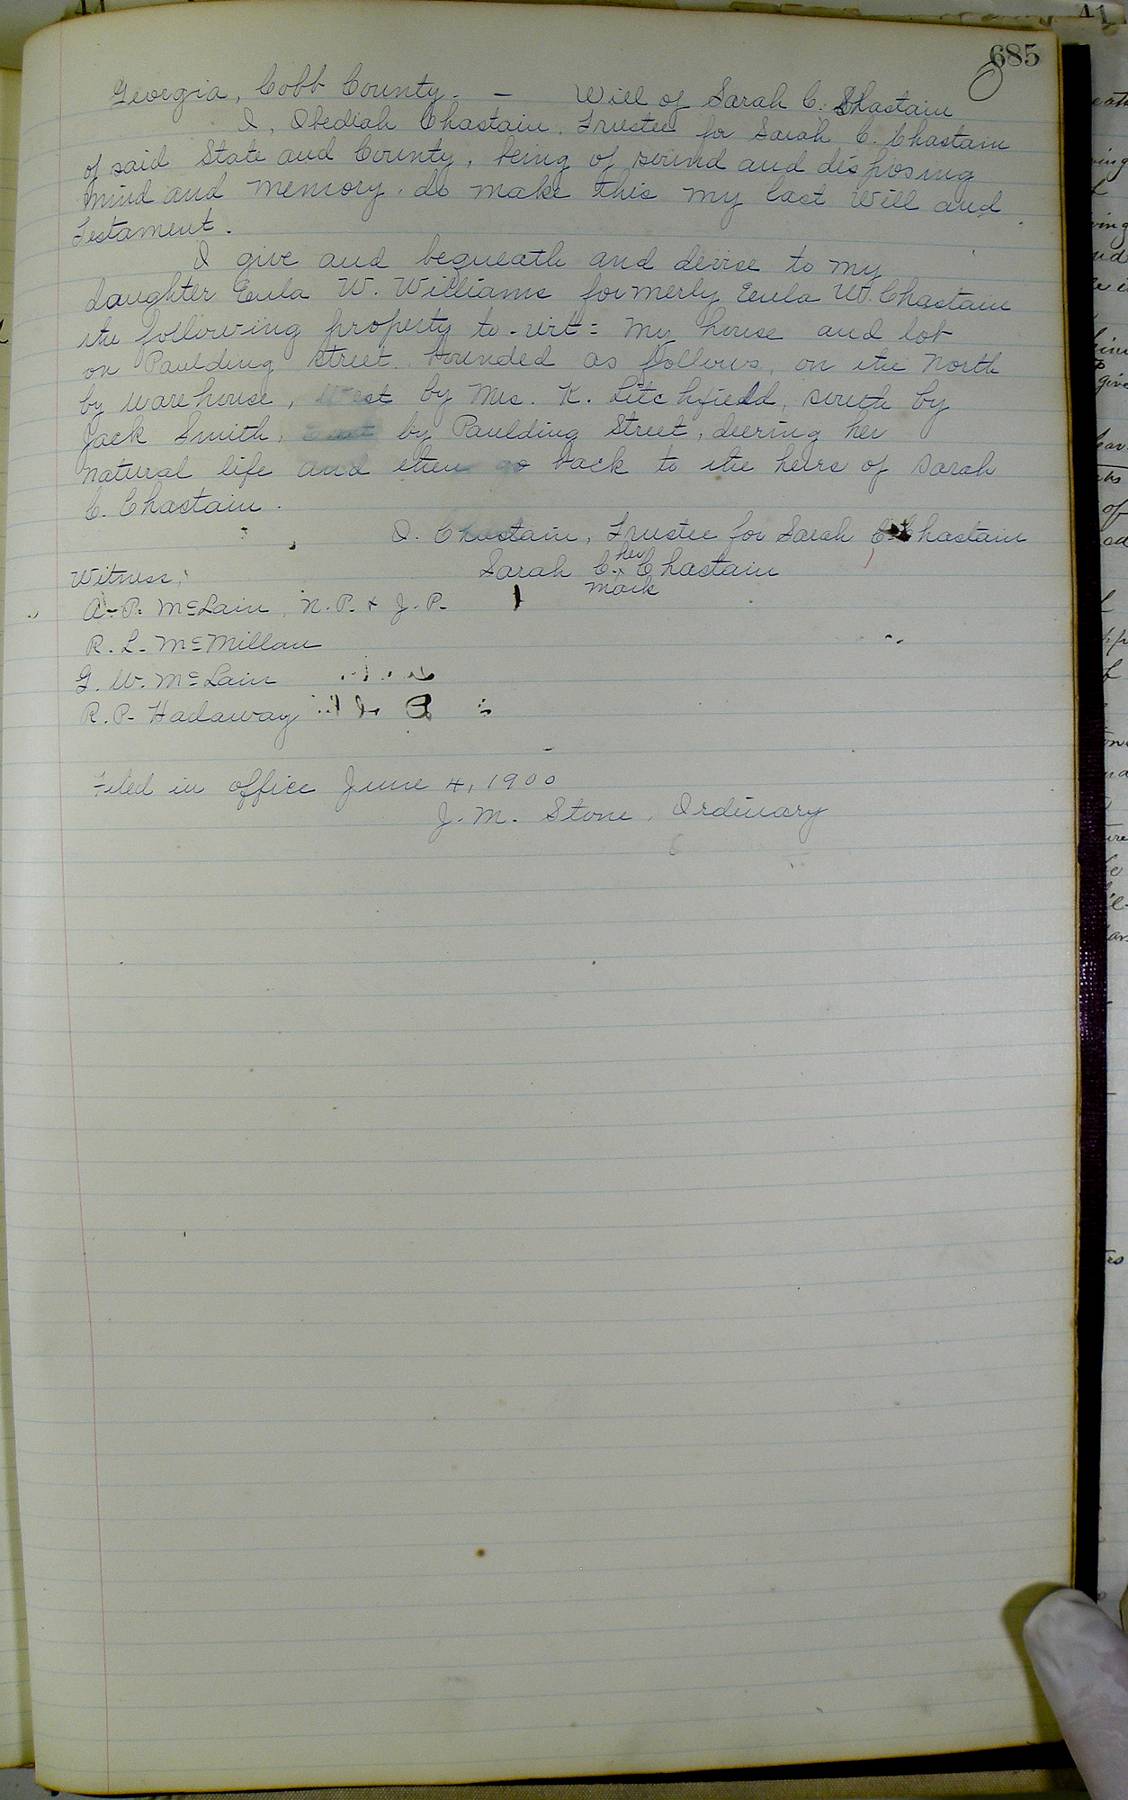 685
Georgia, Cobb County. – Will of Sarah C. Chastain
I, Obediah Chastain, Trustee for Sarah C. Chastain
of said State and County, being of sound and disposing
mind and memory, do make this my last Will and
Testament.
I give and bequeath and devise to my
daughter Eula W. Williams formerly Eula W. Chastain
the following property to-wit: My house and lot
on Paulding street, bounded as follows, on the North
by warehouse, West by Mrs. K. Litchfield, South by
Jack Smith, East by Paulding Street, deering her
natural life and then go back to the heirs of Sarah
C. Chastain.
O. Chastain, Trustee for Sarah C. Chastain
Sarah C. her x Chastain
mark
Witness,
A. P. McLain, N. P. & J. P.
R. L. McMillan
G. W. McLain
R. P. Hadaway
Filed in office June 4, 1900
J. M. Stone, Ordinary